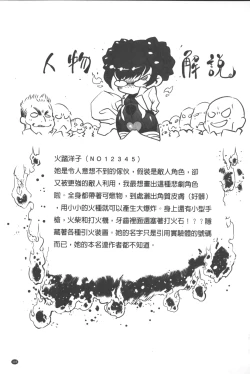 人物解說
火踏洋子(NO12345)
她是令人意想不到的傢伙,假裝是敵人角色,卻
又被更強的敵人利用,我最想畫出這種悲劇角色
說。全身都帶著可燃物,到處灑出角質皮膚(好髒)
,用小小的火種就可以產生大爆炸。身上還有小型手
槍,火柴和打火機,牙齒裡面還塞著打火石!??隱
藏著各種引火裝置。她的名字只是引用實驗體的號碼
而已,她的本名連作者都不知道。